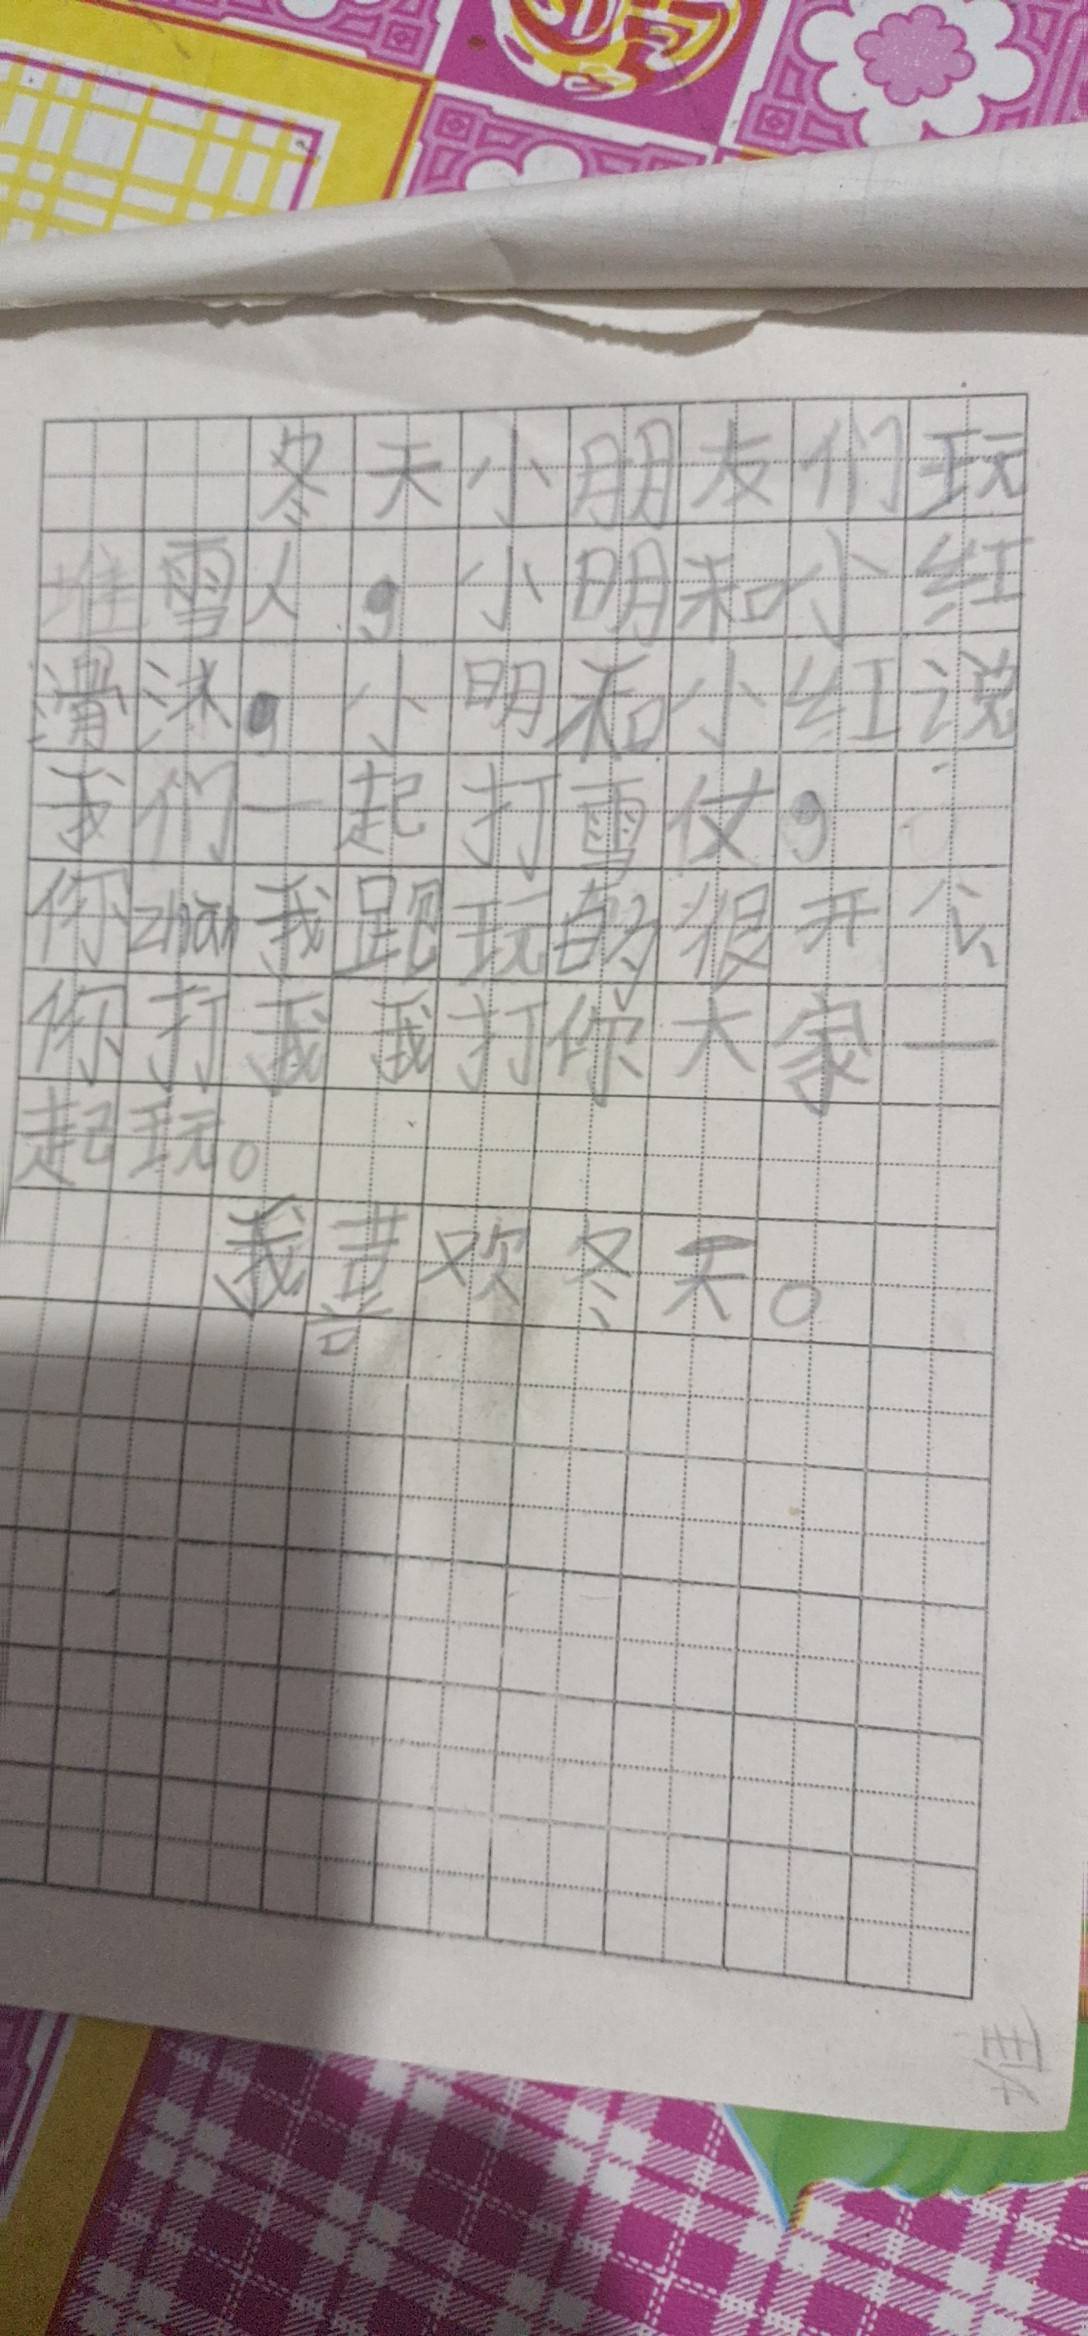 冬天小朋友们玩
堆雪人，小明和小红
滑冰，小明和小红说
我们一起打雪仗，
你zhan我跑玩的很开心
你打我我打你大家一
起玩。
我喜欢冬天。